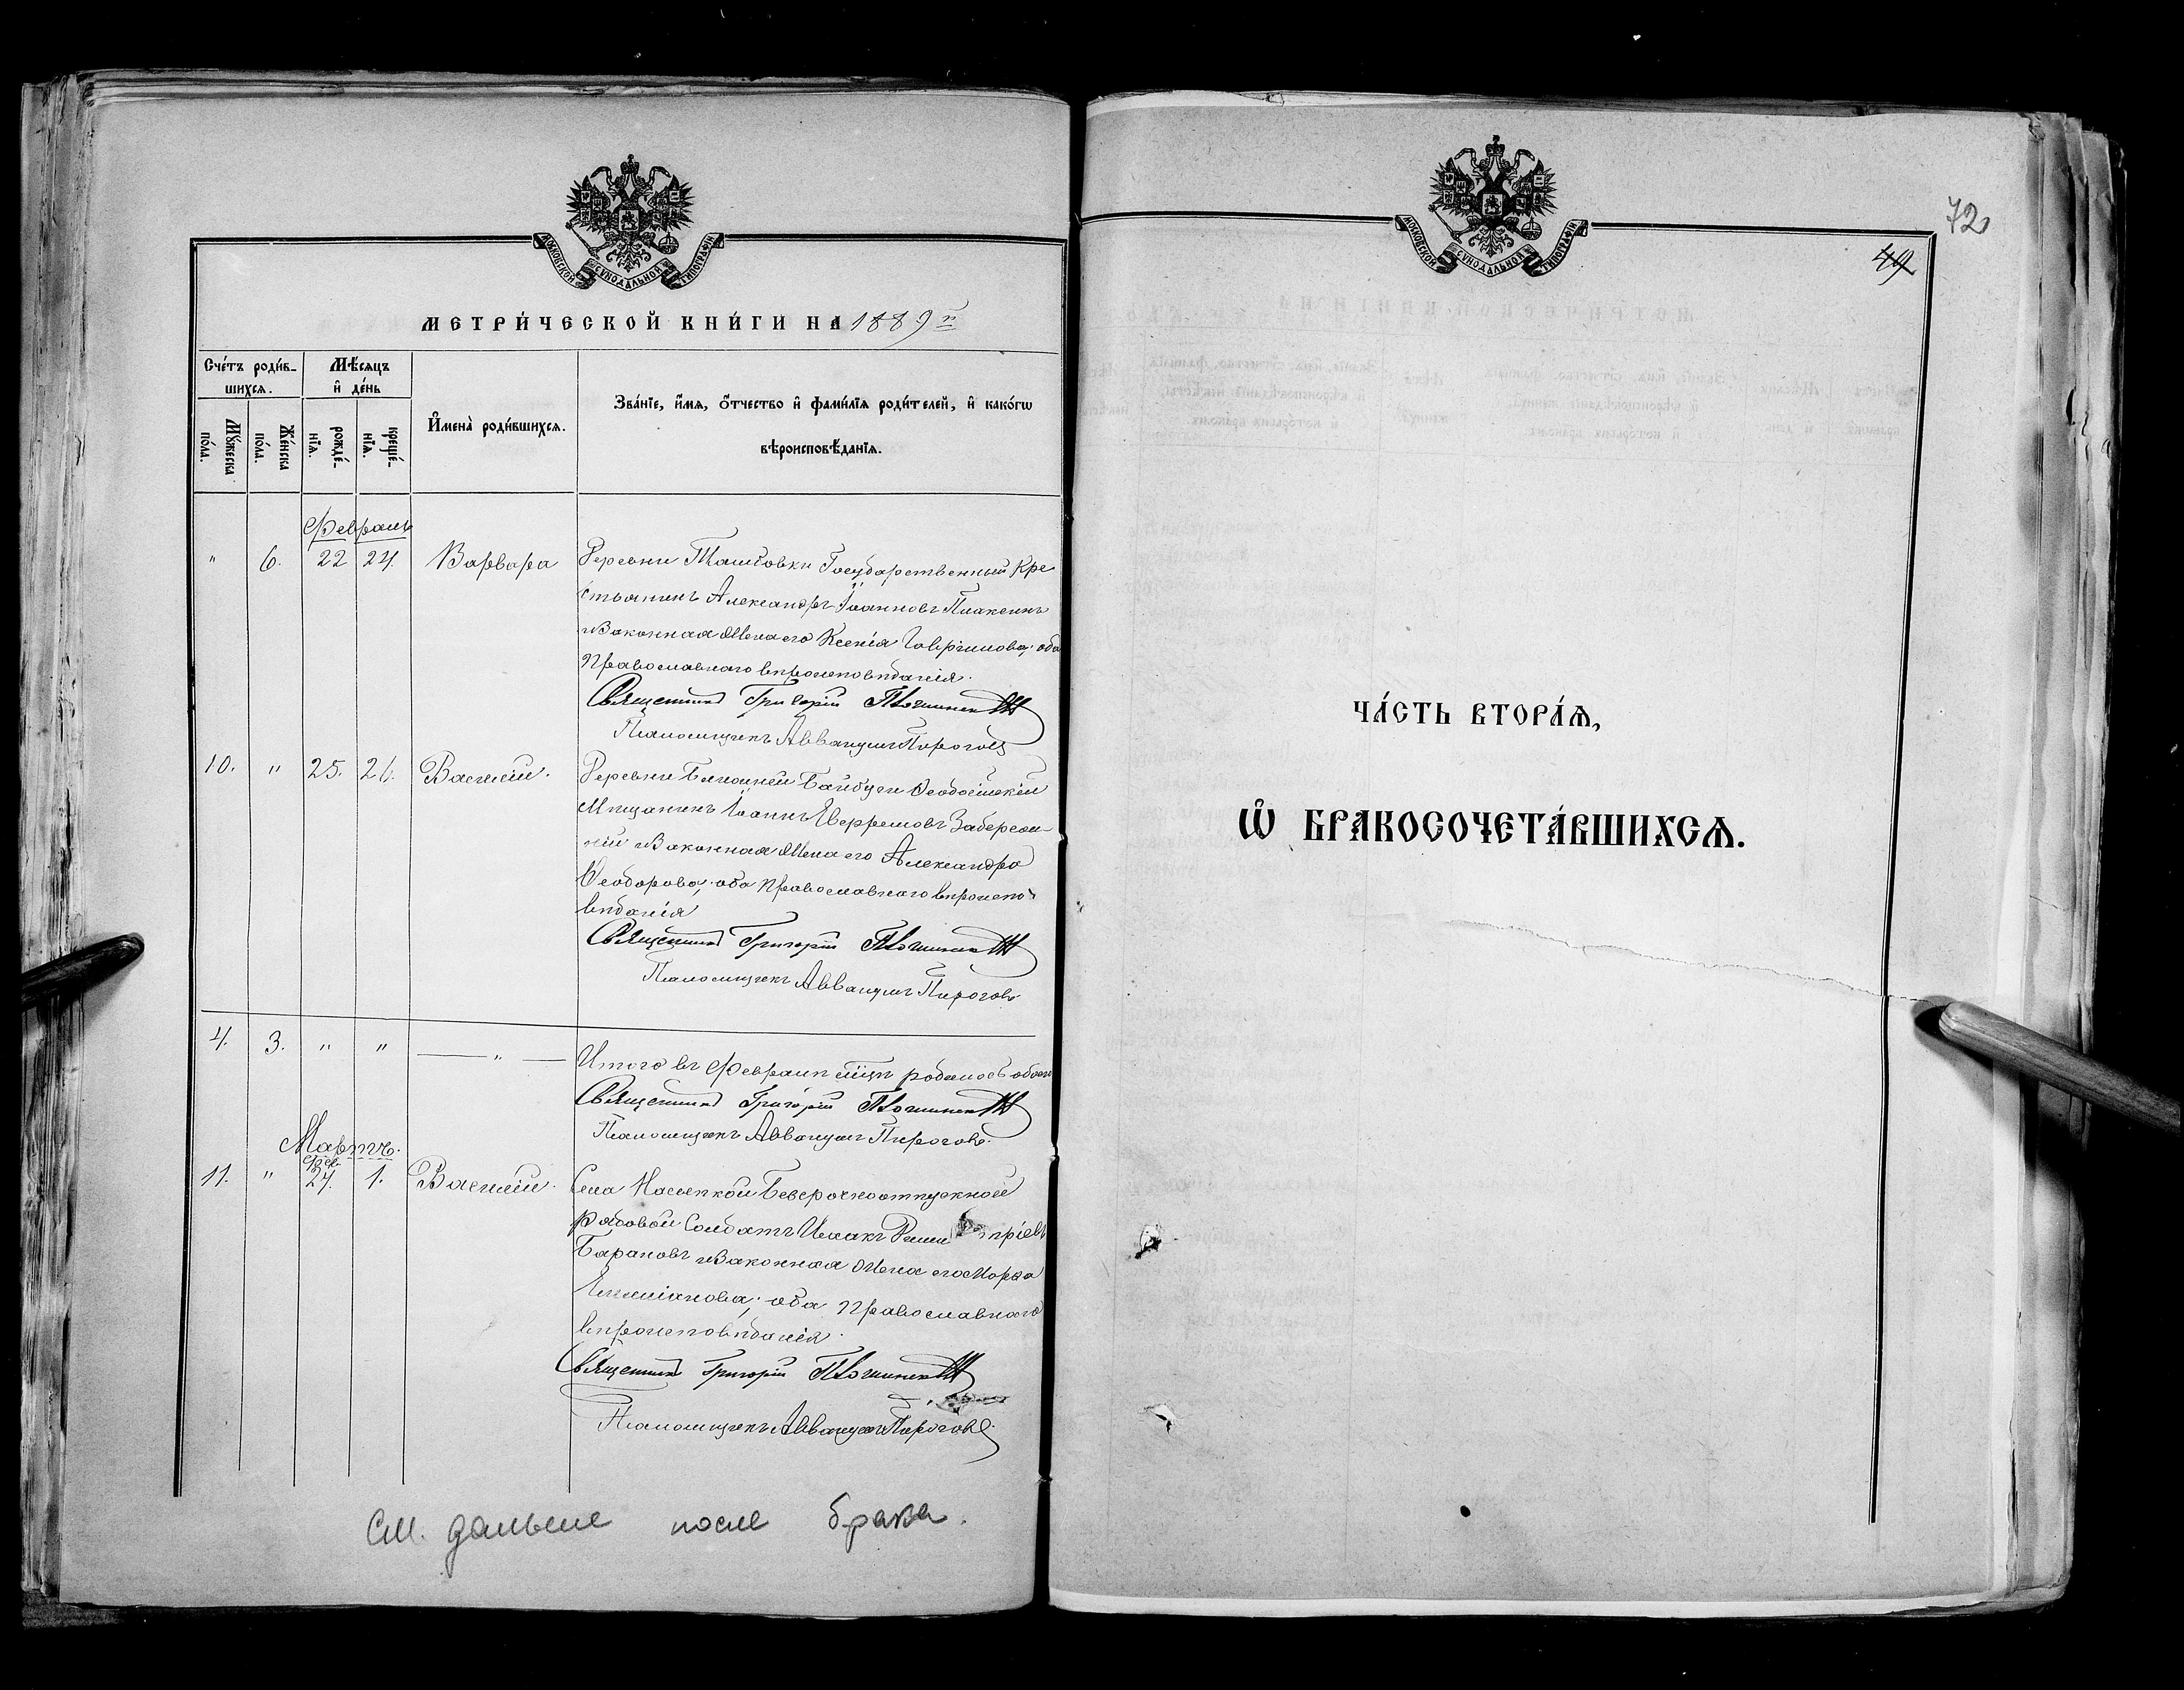 МОСКОВСКОЙ СѴНОДАЛЬНОЙ ТИПОГРАФІИ
МЕТРИ́ЧЕСКОЙ КНИ́ГИ НА 1889 г.
Сче́тъ роди́в-
шихсѧ.
Мѣ́сѧцъ
и҆ де́нь
Мꙋ́жеска
по́ла.
Же́нска
по́ла.
рожде́-
нїѧ.
креще́-
нїѧ.
И҆мена̀ роди́вшихсѧ.
Зва́нїе, и҆́мѧ, ѻ҆́тчество и҆ фами́лїѧ роди́телей, и҆ како́гѡ
вѣроисповѣ́данїѧ.
Февраль
" 6. 22 24. Варвара Деревни Ташовки Государственный Кре
стьянинъ Александръ Іоанновъ Плаксинъ
и Законная Жена его Ксенія Гаврилова, оба
Православнаго вѣроисповѣданія.
Священникъ Григорій
Псаломщикъ Аввакумъ Пироговъ
10. " 25. 26. Василій. Деревни Байбуги Ѳеодосійскій
Мѣщанинъ Іоаннъ Евфремовъ
и Законная Жена его Александра
Ѳеодорова, оба Православнаго вѣроиспо-
вѣданія
Священникъ Григорій
Псаломщикъ Аввакумъ Пироговъ
4. 3. " " — " — Итого въ Февралѣ мѣсяцѣ родилось обоего
Священникъ Григорій
Псаломщикъ Аввакумъ Пироговъ.
Мартъ.
Фев.
11. " 27. 1. Василій. Села Насыпкой Безсрочноотпускной
рядовой Солдатъ Исаакъ Дими тріевъ
Барановъ и Законная Жена его Марѳа
Емиліанова, оба Православнаго
вѣроисповѣданія.
Священникъ Григорій
Псаломщикъ Аввакумъ Пироговъ.
См. дальше после брака.
МОСКОВСКОЙ СѴНОДАЛЬНОЙ ТИПОГРАФІИ
72
49
ЧА́СТЬ ВТОРА́Ѧ,
Ѡ҆ БРАКОСОЧЕТА́ВШИХСѦ.